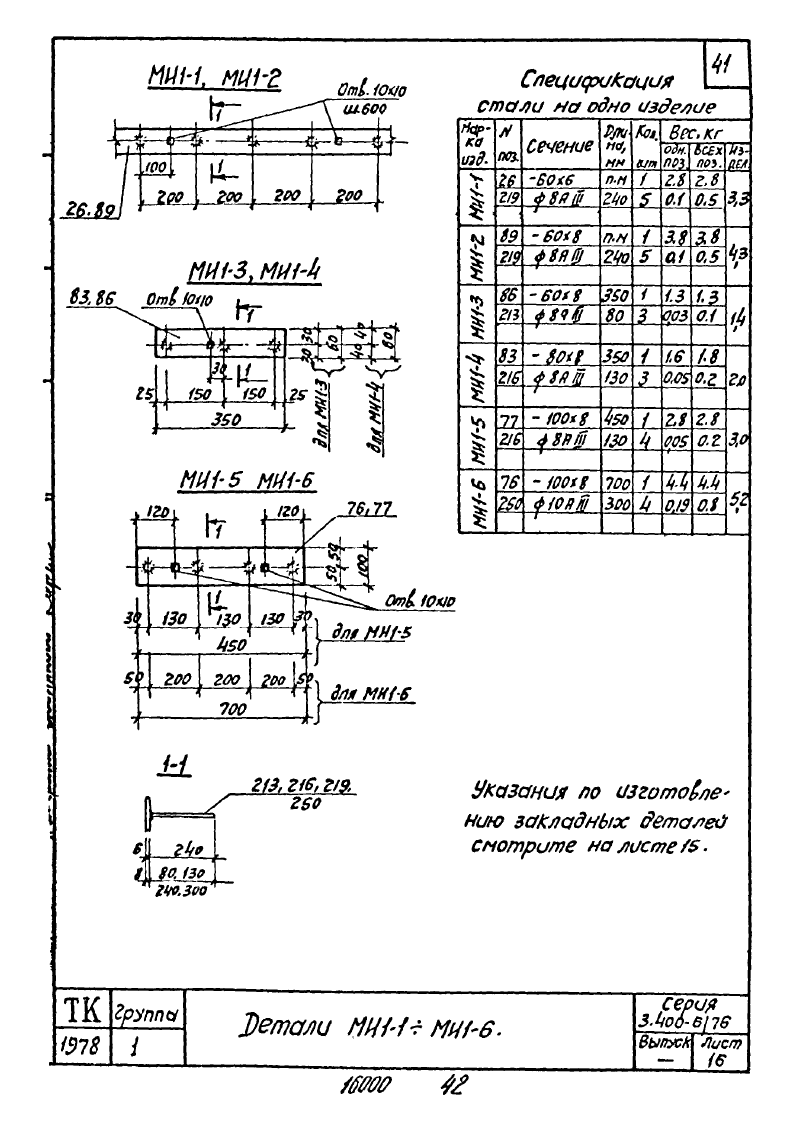 41
МИ1-1, МИ1-2
Отв. 10х10
ш.600
1
1
100
200 200 200 200
26.89
МИ1-3, МИ1-4
83,86
Отв 10х10
1
1
30
25 150 150 25
350
30 30
60
40 40
80
для МИ1-3
для МИ1-4
МИ1-5 МИ1-6
120
1
120
76,77
50 50
100
Отв. 10х10
1
30 130 130 130 30
450
для МИ1-5
50 200 200 200 50
700
для МИ1-6
1-1
213, 216, 219.
250
6 240
8 80, 130
240.300
Спецификация
стали на одно изделие
Мар-ка изд. N поз. Сечение Дли на, мм Кол. шт Вес. кг
одн. поз. всех поз. Из-дел
МИ1-1 26 -60х6 п.м 1 2.8 2.8 3,3
219 ф8АIII 240 5 0.1 0.5
МИ1-2 89 -60х8 п.м 1 3.8 3.8 4,3
219 ф8АIII 240 5 0,1 0,5
МИ1-3 86 -60х8 350 1 1.3 1.3 1,4
213 ф8АIII 80 3 0,03 0.1
МИ1-4 83 -80х8 350 1 1.6 1.8 2,0
216 ф8АIII 130 3 0.05 0.2
МИ1-5 77 -100х8 450 1 2.8 2.8 3,0
216 ф8АIII 130 4 0,05 0.2
МИ1-6 76 -100х8 700 1 4.4 4.4 5,2
250 ф10АIII 300 4 0,19 0.8
Указания по изготовле-
нию закладных деталей
смотрите на листе 15.
ТК Группа
1978 1
Детали МИ1-1÷МИ1-6.
Серия
3.400-6/76
Выпуск Лист
— 16
16000 42